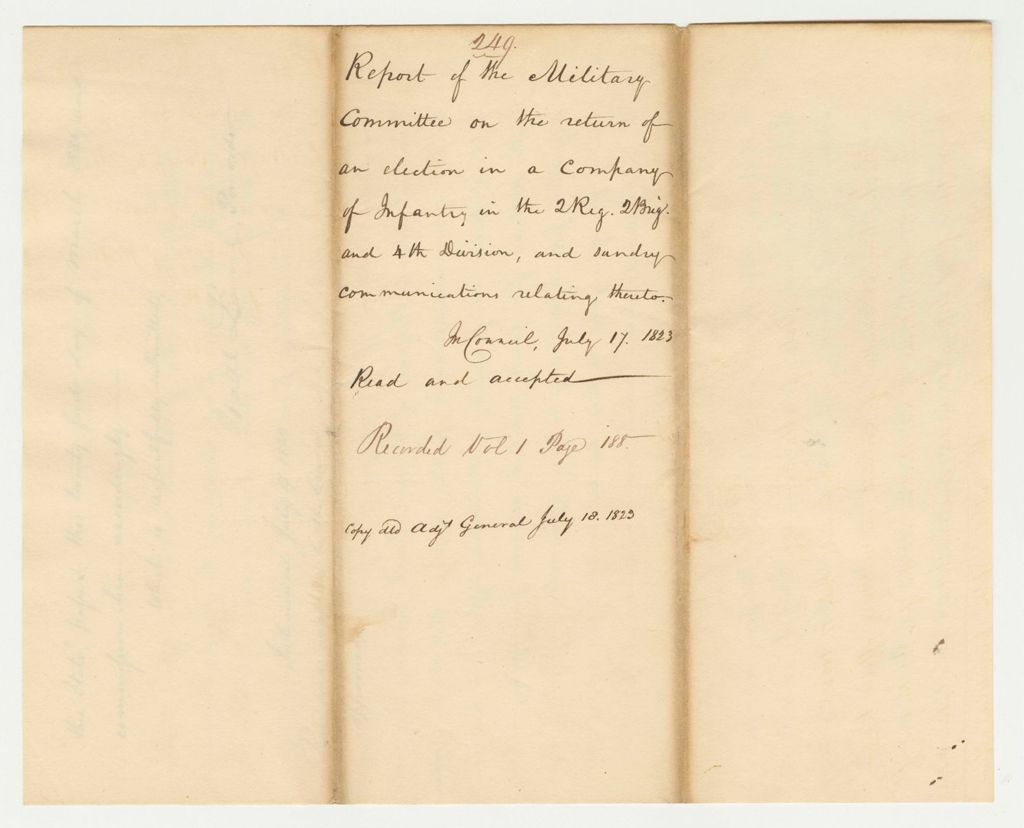 249.
Report of the Military
Committee on the return of
an election in a Company
of Infantry in the 2 Reg. 2 Brig.
and 4th Division, and sundry
communications relating thereto.
In Council, July 17. 1823
Read and accepted
Recorded Vol 1 Page 188.
Copy dld Adjt General July 18. 1823